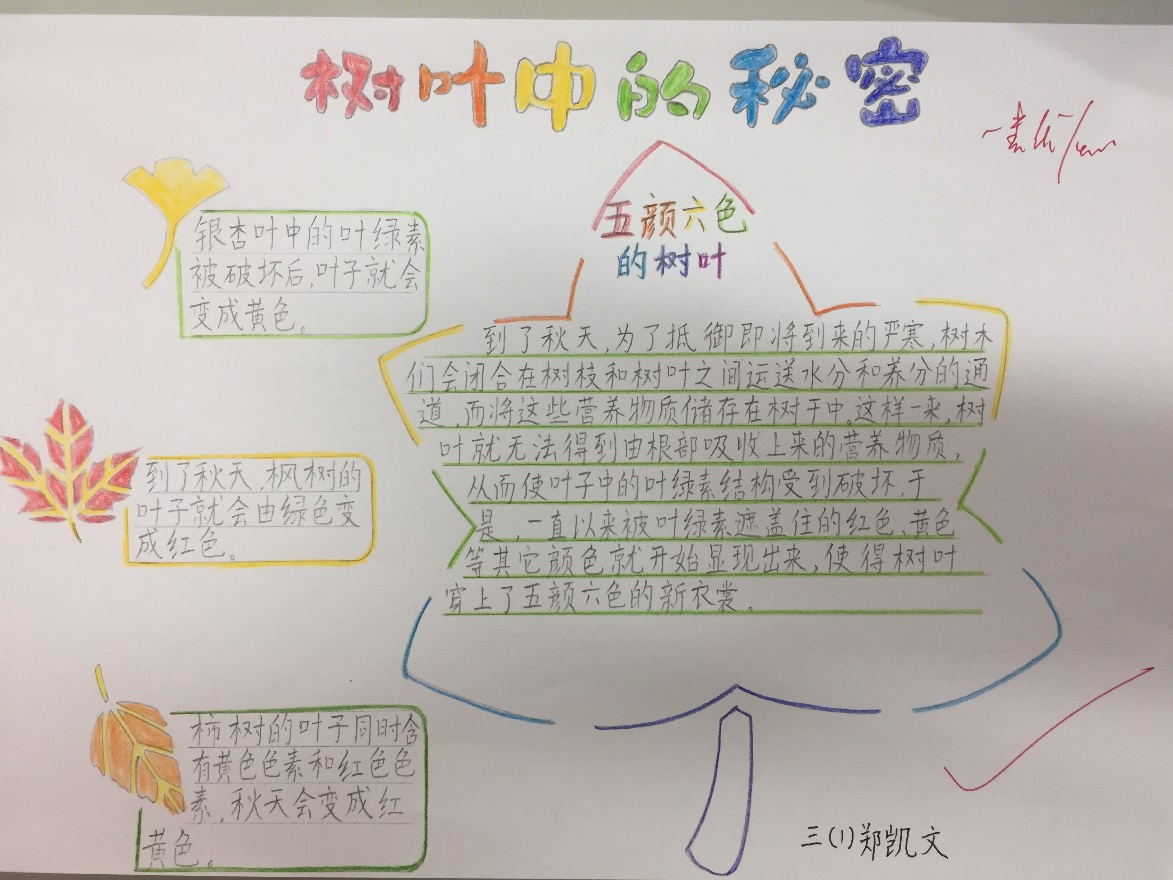 树叶中的秘密
银杏叶中的叶绿素
被破坏后,叶子就会
变成黄色。
到了秋天,枫树的
叶子就会由绿色变
成红色。
柿树的叶子同时含
有黄色色素和红色色
素,秋天会变成红
黄色。
五颜六色
的树叶
到了秋天,为了抵御即将到来的严寒,树木
们会闭合在树枝和树叶之间运送水分和养分的通
道,而将这些营养物质储存在树干中。这样一来,树
叶就无法得到由根部吸收上来的营养物质,
从而使叶子中的叶绿素结构受到破坏,于
是,一直以来被叶绿素遮盖住的红色、黄色
等其它颜色就开始显现出来,使得树叶
穿上了五颜六色的新衣裳。
三(1)郑凯文